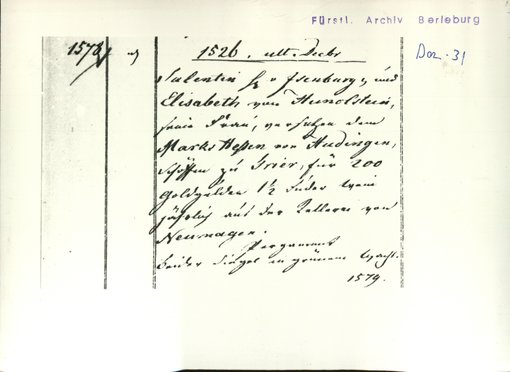 Fürstl. Archiv Berleburg
Dez. 31
1578
1526. ult. Decbr
Salentin Hr v Isenburg, und
Elisabeth von Hunolstein,
seine Frau, versetzen dem
Marks Hessen von Hudingen,
Schöffen zu Trier, für 200
Goldgulden 1½ Fuder Wein
jährlich aus der Kellerei von
Neumagen.
Pergament
beider Siegel in grünem Wachs.
1579.